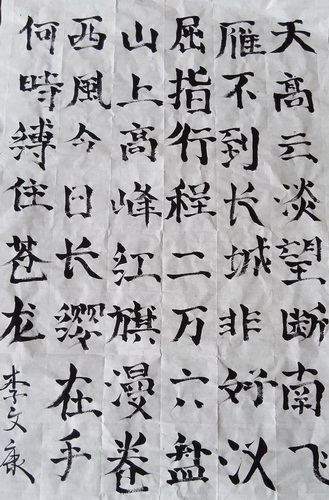 天高云淡望断南飞
雁不到长城非好汉
屈指行程二万六盘
山上高峰红旗漫卷
西風今日长缨在手
何時缚住苍龙
李文康